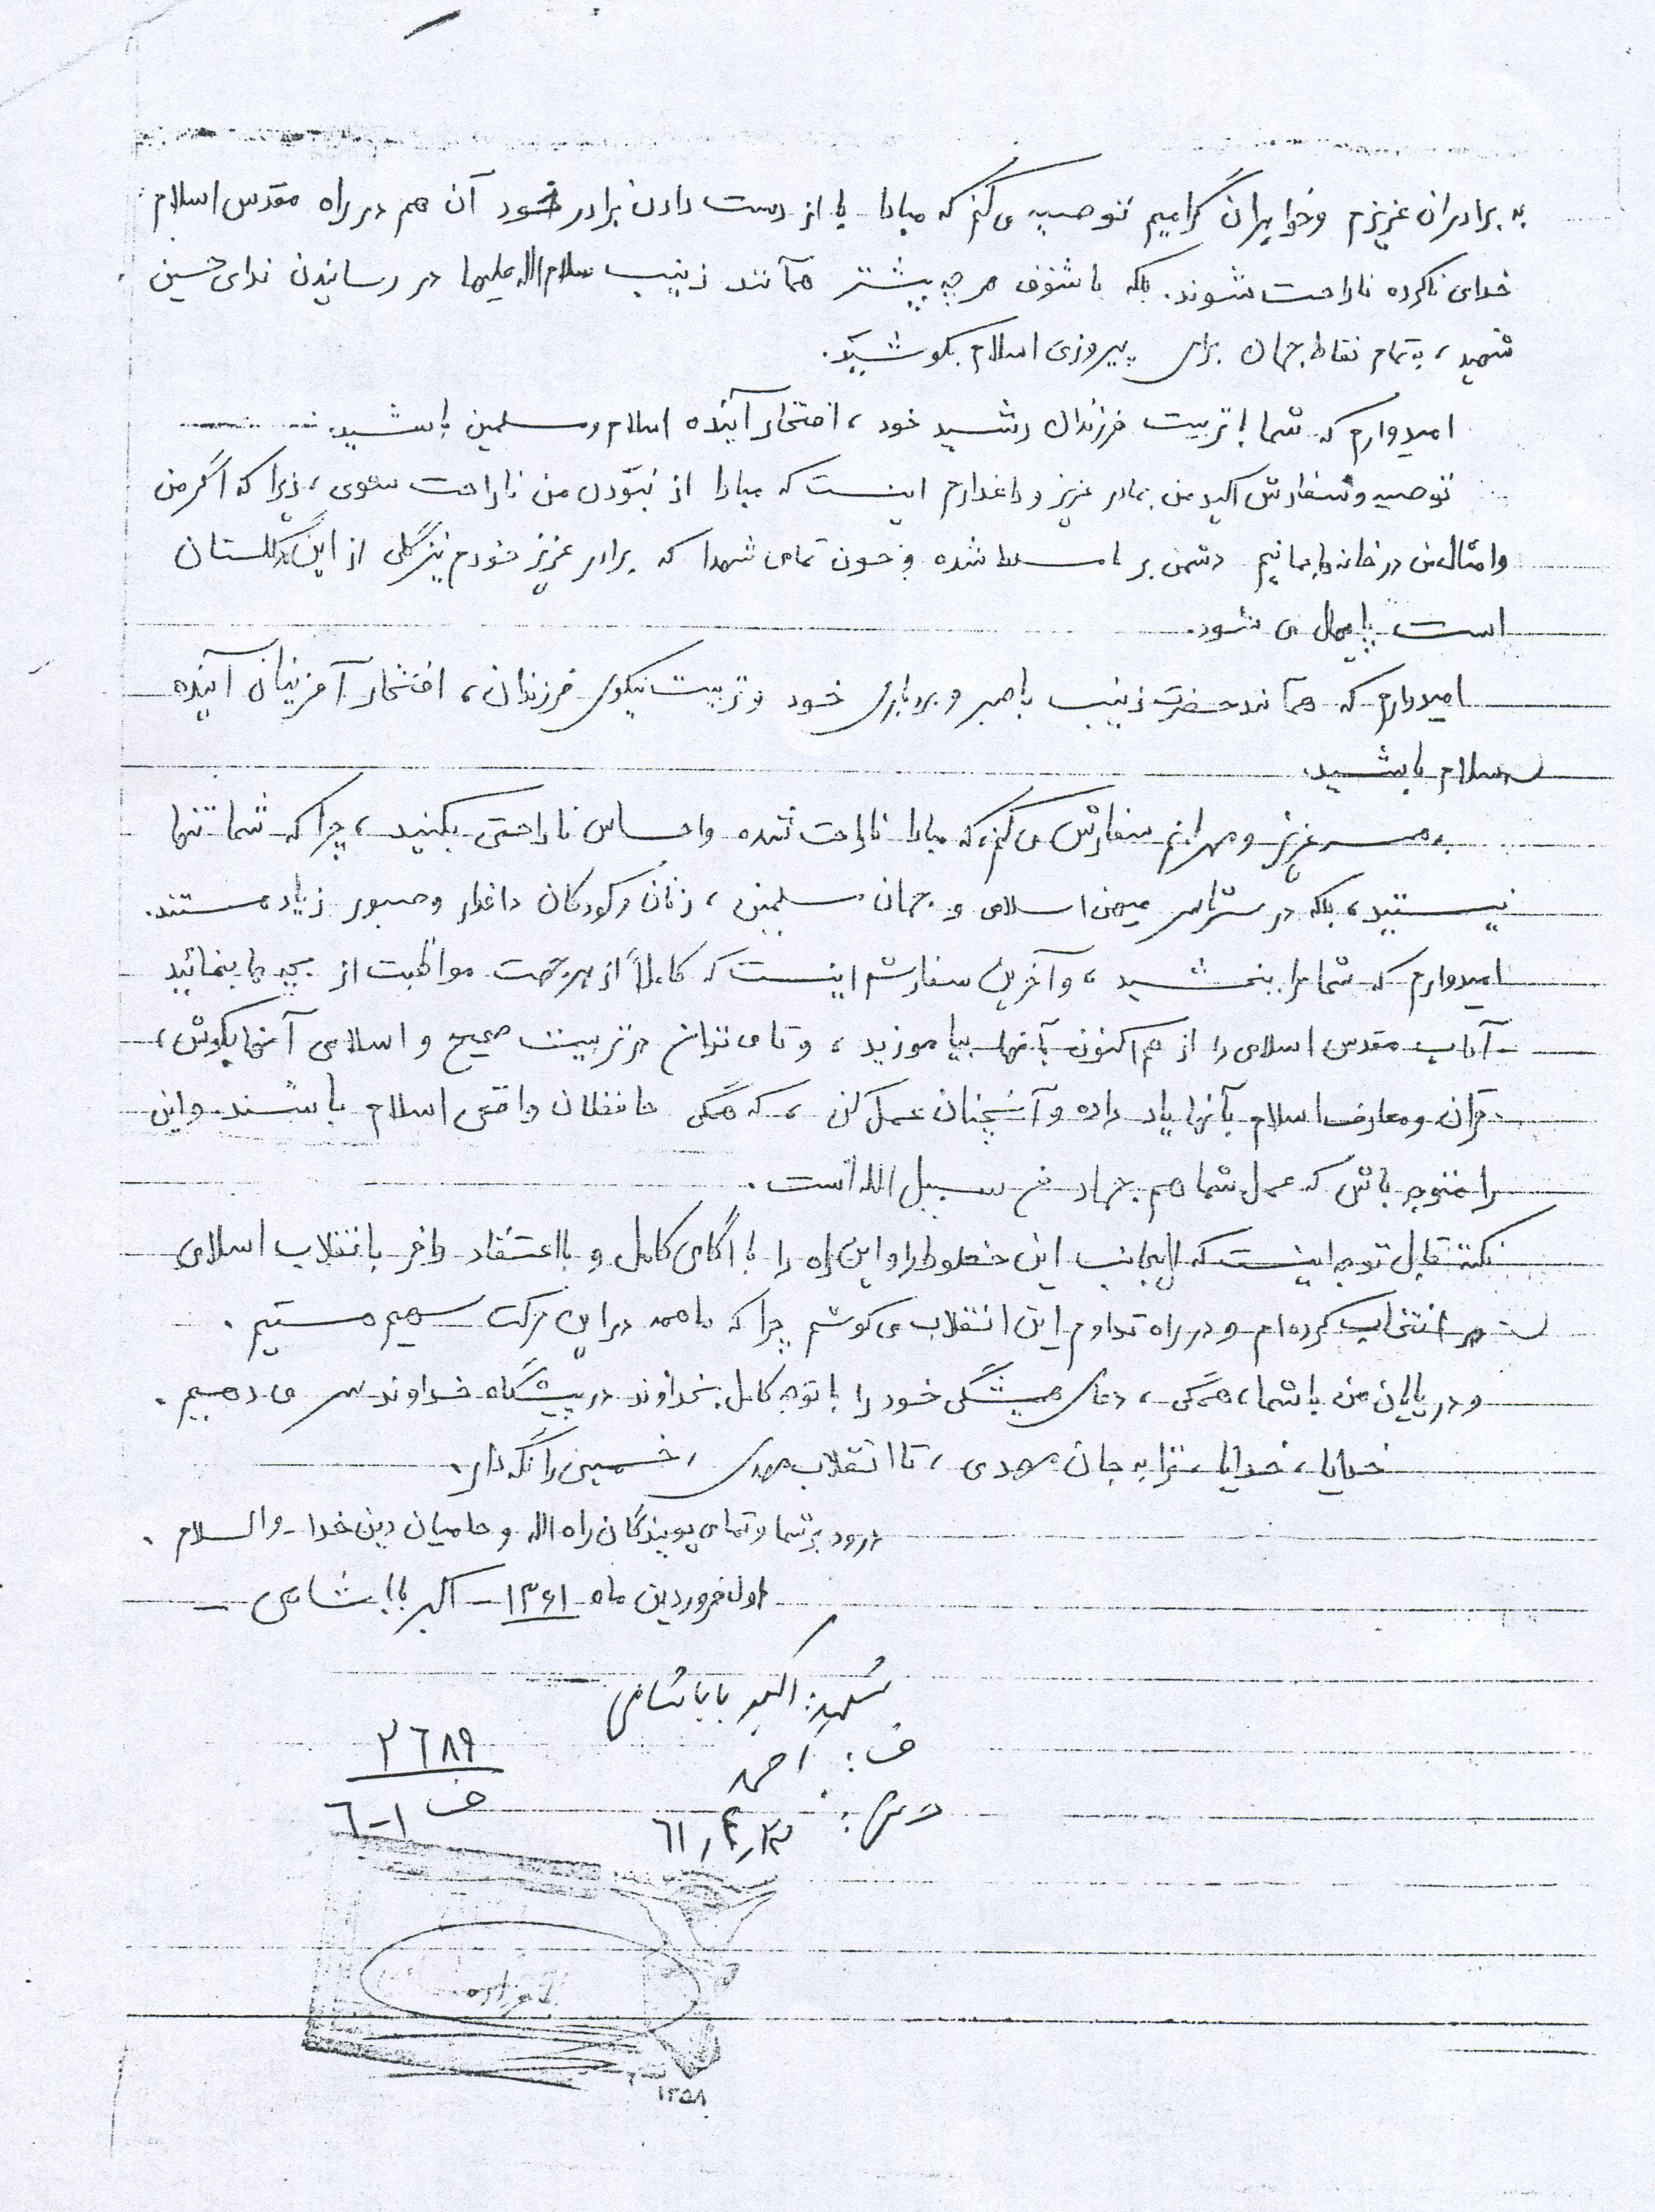 به برادران عزیزم و خواهران گرامیم توصیه می کنم که مبادا با از دست دادن برادر خود آن هم در راه مقدس اسلام
خدای ناکرده ناراحت شوند. بلکه با شغف هر چه بیشتر همانند زینب سلام الله علیها در رساندن ندای حسین
شهید، به تمام نقاط جهان برای پیروزی اسلام بکوشید.
امیدوارم که شما با تربیت فرزندان رشید خود، افتخار آینده اسلام و مسلمین باشید.
توصیه و سفارش اکید من بمادر عزیز و داغدارم اینست که مبادا از نبودن من ناراحت شوی، زیرا که اگر من
و امثال من در خانه ها بمانیم دشمن بر ما مسلط شده و خون تمامی شهدا که برادر عزیز خودم نیز گلی از این گلستان
است پایمال می شود.
امیدوارم که همانند حضرت زینب با صبر و بردباری خود و تربیت نیکوی فرزندان، افتخار آفرینان آینده
اسلام باشید.
به همسر عزیز و مهربانم سفارش می کنم، که مبادا ناراحت شده و احساس ناراحتی بکنید، چرا که شما تنها
نیستید، بلکه در سرتاسر میهن اسلامی و جهان مسلمین، زنان و کودکان داغدار و صبور زیاد هستند.
امیدوارم که شما مرا ببخشید، و آخرین سفارشم اینست که کاملاً از هر جهت مواظبت از بچه ها بنمائید
آداب مقدس اسلامی را از هم اکنون بآنها بیاموزید، و تا می توان در تربیت صحیح و اسلامی آنها بکوش،
قرآن و معارف اسلام بآنها یاد داده و آنچنان عمل کن، که همگی حافظان واقعی اسلام باشند و این
را متوجه باش که عمل شما هم جهاد فی سبیل الله است.
نکته قابل توجه اینست که اینجانب این خطوط را و این راه را با آگاهی کامل و با اعتقاد وافر بانقلاب اسلامی
انتخاب کرده ام و در راه تداوم این انقلاب می کوشم چرا که ما همه در این حرکت سهیم هستیم.
و در پایان من با شما، همگی، دعای همیشگی خود را با توجه کامل بخداوند در پیشگاه خداوند سر می دهیم.
خدایا، خدایا، ترا به جان مهدی، تا انقلاب مهدی، خمینی را نگه دار.
درود بر شما و تمامی پویندگان راه الله و حامیان دین خدا - والسلام.
اول فروردین ماه ۱۳۶۱ - اکبر باباشاهی
شهید: اکبر باباشاهی
ف: احمد
۲۶۸۹
ف ۱-۶
۱۳۵۸